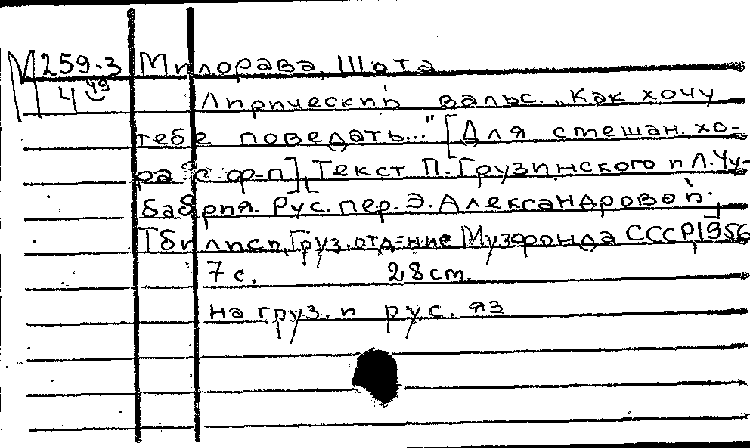 М259-3 Милорава, Шота
Ч 49 Лирический вальс. „Как хочу
тебе поведать..." [Для смешан. хо-
ра с ф-п], [Текст П. Грузинского и Л. Чу-
бабрия. Рус. пер. Э. Александровой.]
Тбилиси, Груз. отд-ние Музфонда СССР, 1956
7 с. 2,8 cm.
на груз. и рус. яз